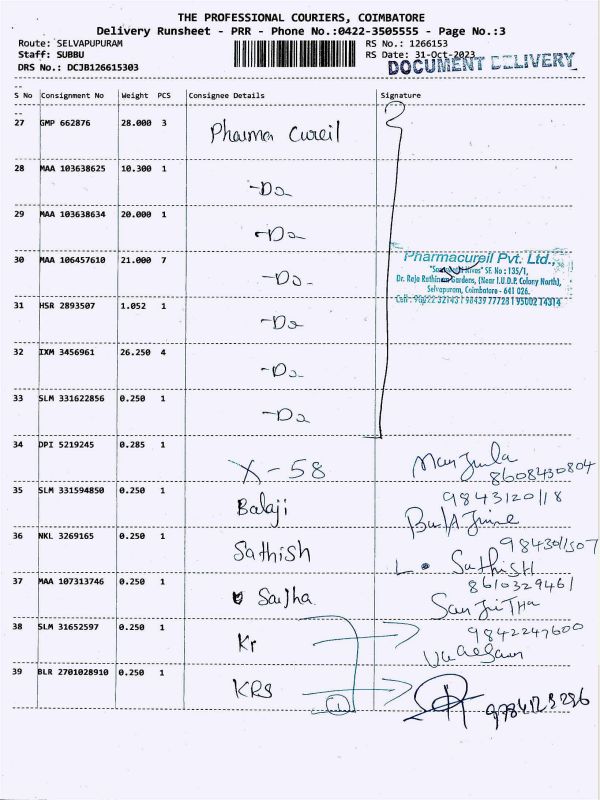 THE PROFESSIONAL COURIERS, COIMBATORE
Delivery Runsheet - PRR - Phone No.:0422-3505555 - Page No.:3
Route: SELVAPUPURAM
RS No.: 1266153
Staff: SUBBU
RS Date: 31-Oct-2023
DRS No.: DCJB126615303
DOCUMENT DELIVERY
S No Consignment No Weight PCS Consignee Details Signature
27 GMP 662876 28.000 3 Pharma Cureil
28 MAA 103638625 10.300 1 -Do
29 MAA 103638634 20.000 1 -Do
30 MAA 106457610 21.000 7 -Do-
Pharmacureil Pvt. Ltd.,
SF. No : 135/1,
Dr. Raja Rathinam Gardens, (Near I.U.D.P. Colony North),
Selvapuram, Coimbatore - 641 026.
Cell : 98422 32143 | 98439 77728 | 95002 14314
31 HSR 2893507 1.052 1 -Do
32 IXM 3456961 26.250 4 -Do-
33 SLM 331622856 0.250 1 -Do
34 DPI 5219245 0.285 1 X-58 Manjula
8608430804
35 SLM 331594850 0.250 1 Balaji 9843120118
36 NKL 3269165 0.250 1 Sathish
L. Sathish
37 MAA 107313746 0.250 1 8610329461
38 SLM 31652597 0.250 1 Kr 9842247600
39 BLR 2701028910 0.250 1 KRS
1